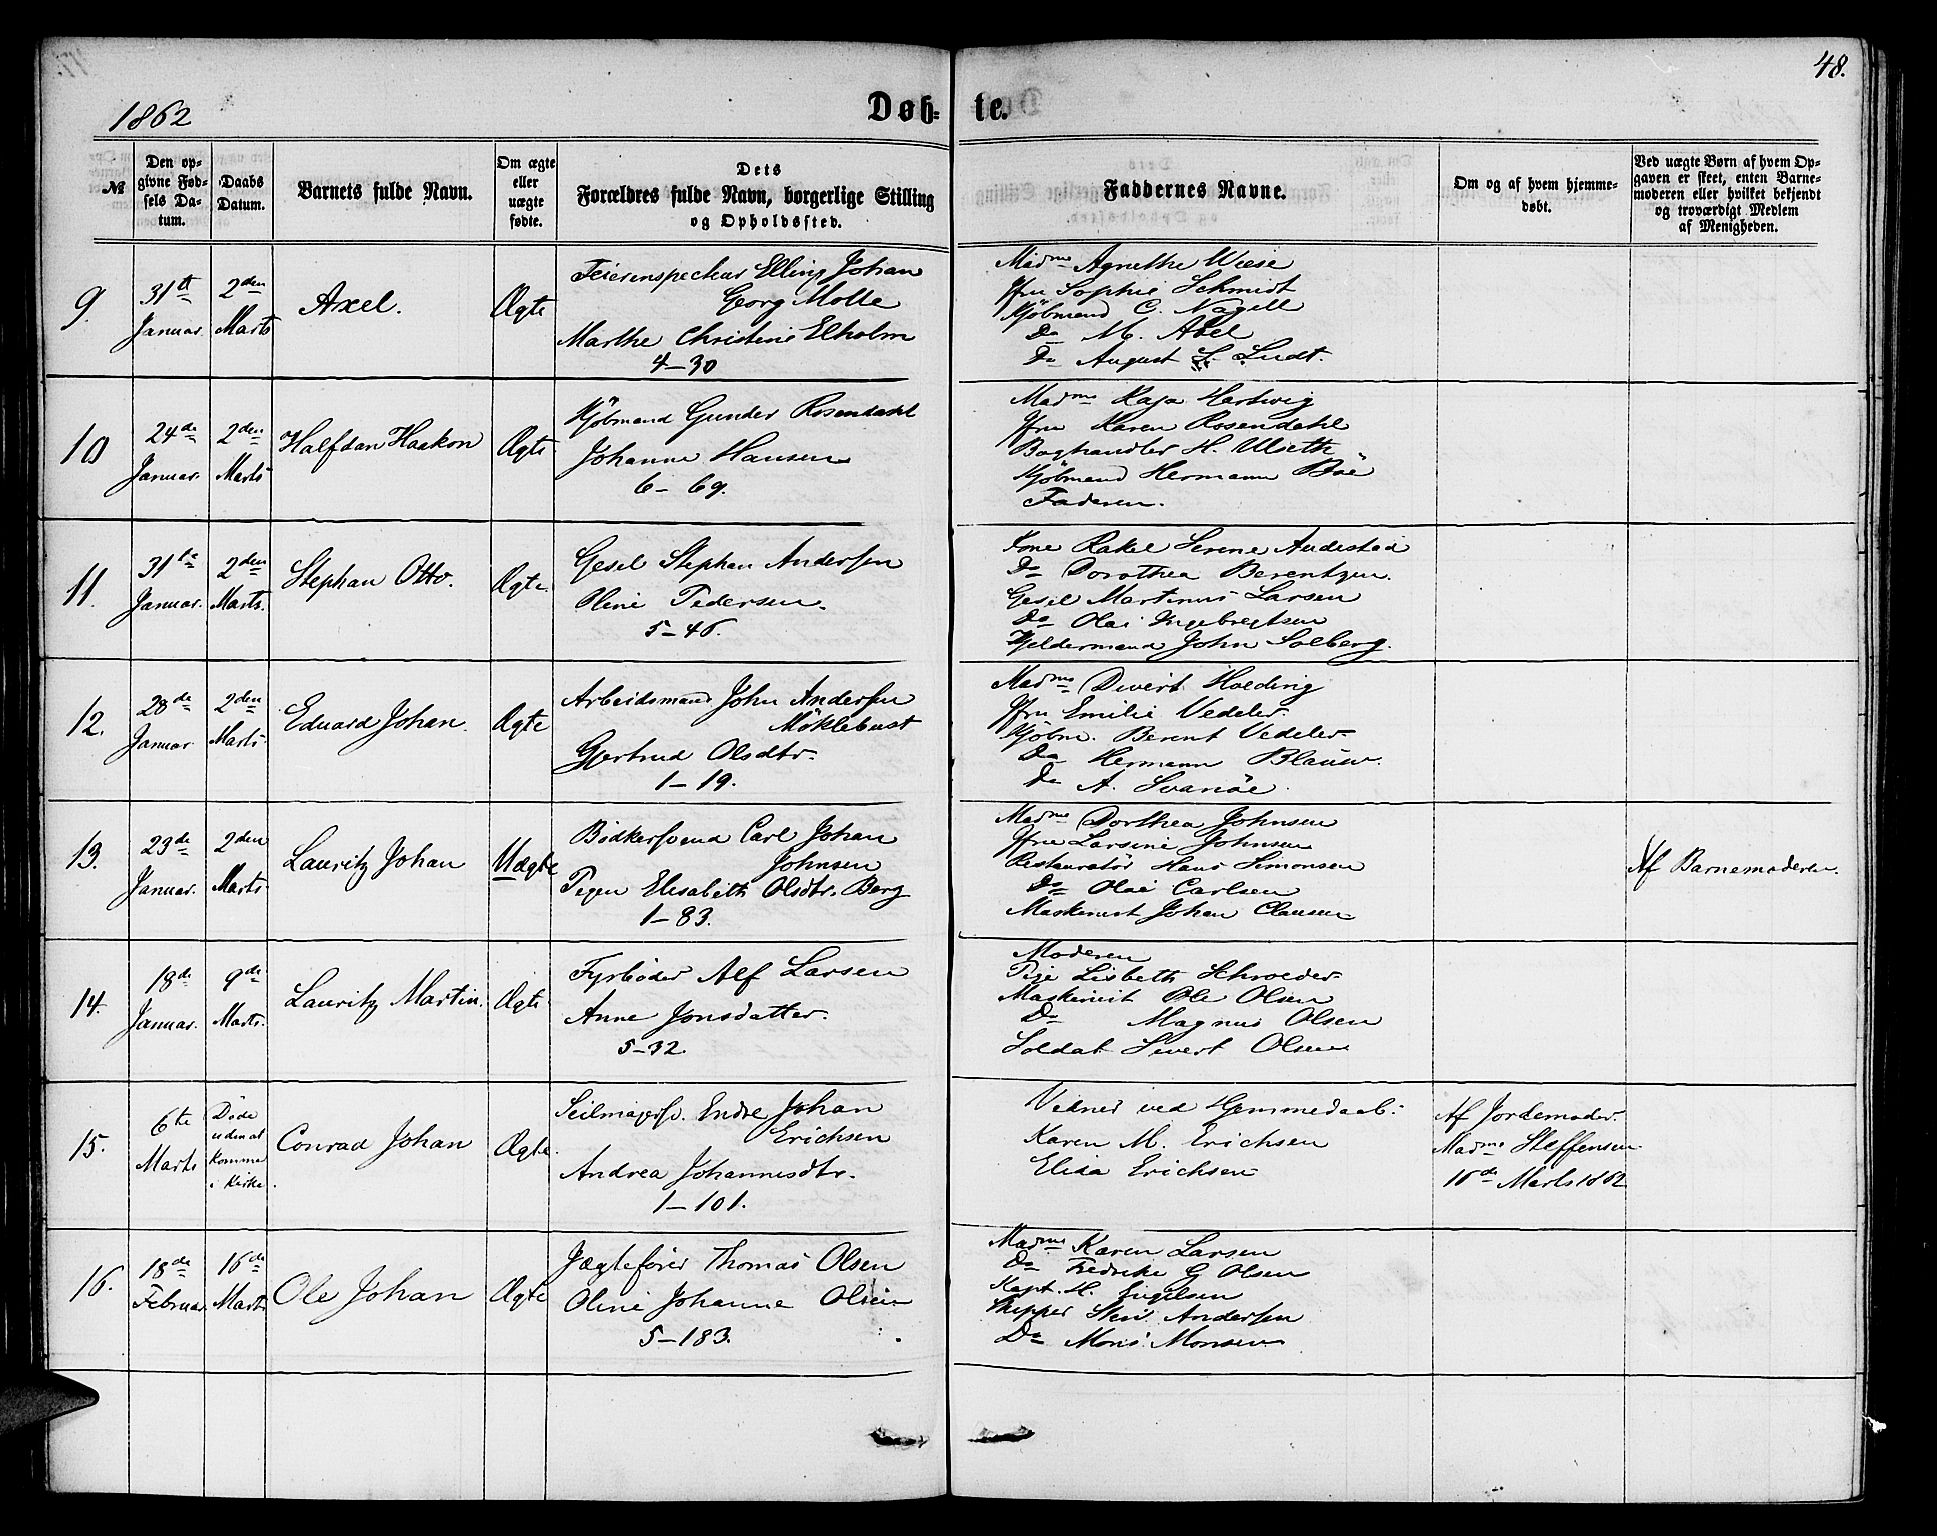 1862
Døb-
te.
48.
№
Den op-
givne Fød-
sels Da-
tum.
Daabs
Datum.
Barnets fulde Navn.
Om ægte
eller
uægte
fødte.
Dets
Forældres fulde Navn, borgerlige Stilling
og Opholdssted.
Faddernes Navne.
Om og af hvem hjemme-
døbt.
Ved uægte Børn af hvem Op-
gaven er skeet, enten Barne-
moderen eller hvilket bekjendt
og troværdigt Medlem
af Menigheden.
9.
31te
Januar.
2den
Marts
Axel.
Ægte
Feierinspecteur Elling Johan
Georg Molle
Marthe Christine Elholm
4-30
Madme Agnethe Wiese
Jfru Sophie Schmidt
Kjøbmand C. Nagell
Do M. Abel
Do August L. Ludt.
10
24de
Januar.
2den
Marts
Halfdan Haakon
Ægte
Kjøbmand Gunder Rosendahl
Johanne Hansen
6-69.
Madme Kaja Hartwig
Jfru Karen Rosendahl
Boghandler H. Ulseth
Kjøbmand Hermann Böe
Faderen.
11.
31te
Januar.
2den
Marts.
Stephan Otto.
Ægte.
Gesel Stephan Andersen
Oline Pedersen.
5-46.
Kone Rakel Serine Andestad
Do Dorothea Berentzen.
Gesel Martinus Larsen
Do Olai Ingebregtsen
Kjeldermand John Solberg.
12.
28de
Januar.
2den
Marts.
Eduard Johan.
Ægte
Arbeidsmand John Andersen
Møklebust
Gjertrud Olsdtr.
1-19.
Madme Divert Holding
Jfru Emilie Vedeler.
Kjøbm. Berent Vedeler
Do Hermann Blauw.
Do A. Svanöe.
13.
23de
Januar.
2den
Marts.
Lauritz Johan
Uægte
Bødkersvend Carl Johan
Johnsen
Pigen Elisabeth Olsdtr. Berg
1-83.
Madme Dorthea Johnsen
Jfru Larsine Johnsen
Restauratør Hans Simonsen
Do Olai Carlsen
Maskinist Johan Clausen
Af Barnemoderen.
14.
18de
Januar.
9de
Marts.
Lauritz Martin.
Ægte
Fyrbøder Alf Larsen
Anne Jonsdatter.
5-32.
Moderen
Pige Lisbeth Schroeder
Maskinist Ole Olsen
Do Magnus Olsen
Soldat Sivert Olsen
15.
6te
Marts
Døde
uden at
komme
i Kirke.
Conrad Johan
Ægte.
Seilmagersv. Endre Johan
Erichsen
Andrea Johannesdtr.
1-101.
Vidner ved Hjemmedaab:
Karen M. Erichsen
Elida Erichsen
Af Jordemoder
Madme Steffensen
16de Marts 1862
16.
18de
Februar
16de
Marts
Ole Johan
Ægte
Jægtefører Thomas Olsen
Oline Johanne Olsen
5-183.
Madme Karen Larsen
Do Fredrike G Olsen
Kapt. H. Engelsen
Skipper Sten Andersen
Do Mons Monsen